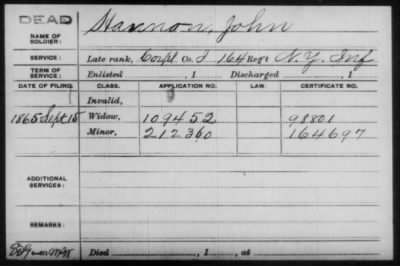 DEAD
NAME OF SOLDIER: Hannon, John
SERVICE: Late rank, Corpl Co. I 164 Reg't N.Y. Inf
TERM OF SERVICE: Enlisted , 1 Discharged , 1
DATE OF FILING. CLASS. APPLICATION NO. LAW. CERTIFICATE NO.
Invalid,
1865 Sept 15 Widow, 109452 98801
Minor, 212360 164697
ADDITIONAL SERVICES:
REMARKS:
Died , 1 , at